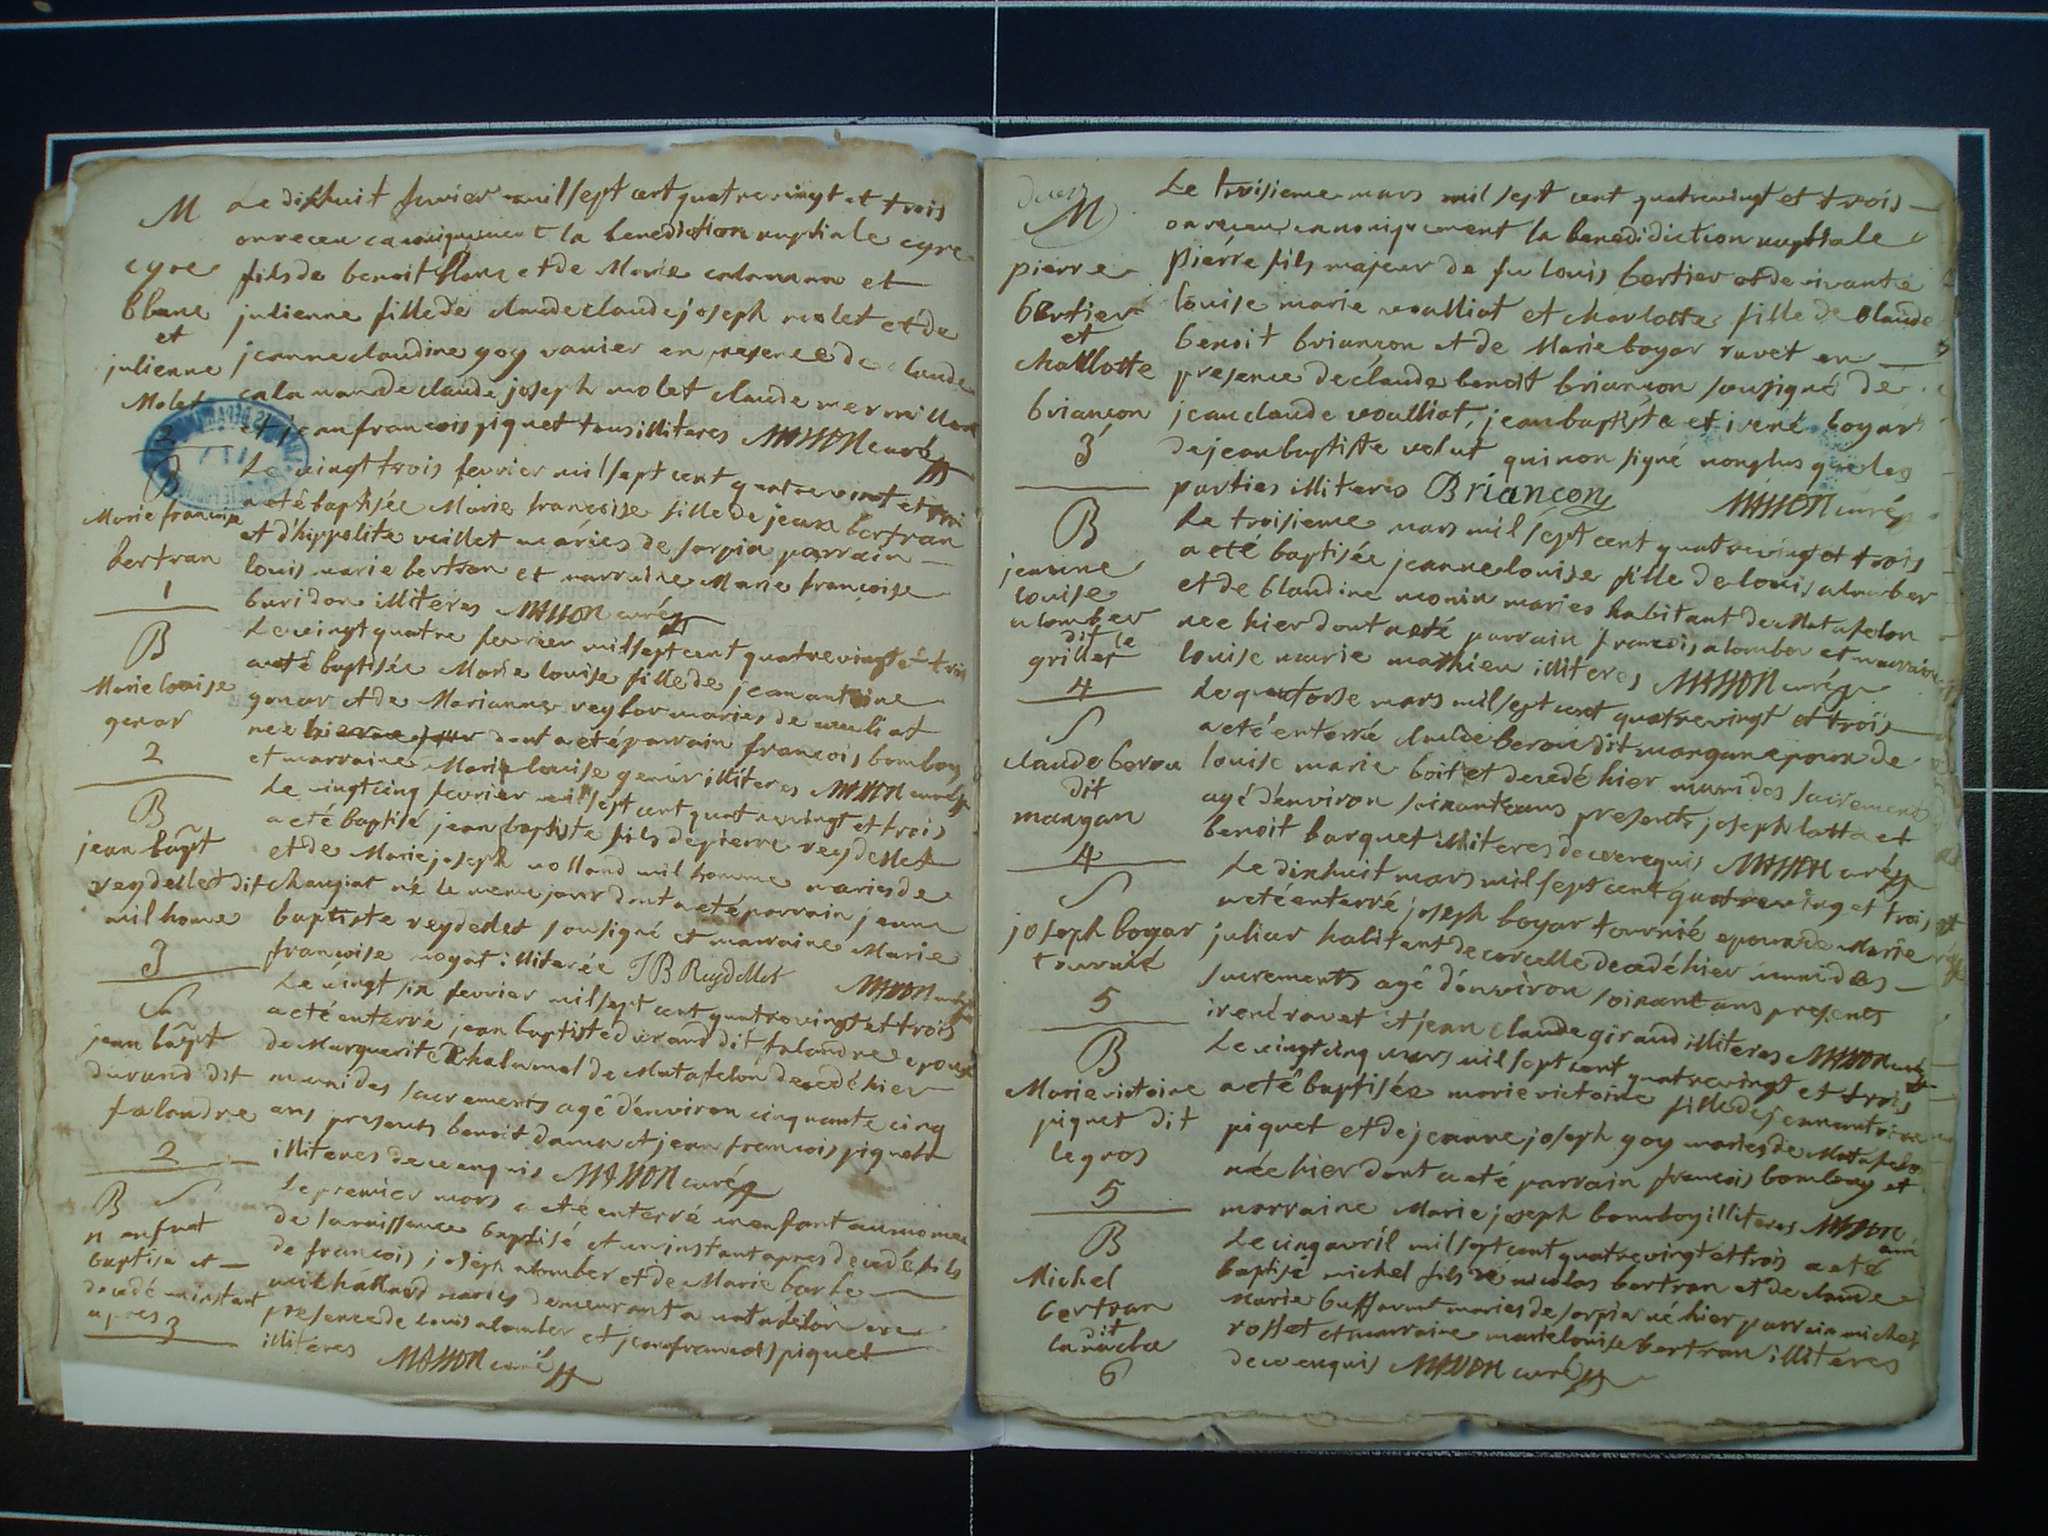 M
Le dixhuit fevrier mil sept cent quatre vingt et trois
on receu canoniquement la benediction nuptiale cyre
cyre
fils de benoit blanc et de Marie calaman et
blanc
julienne fille de claude claude joseph molet et de
et
jeanne claudine goy vanier en presence de claude
julienne
calaman de claude joseph molet claude mermillon
Molet
et jean francois piquet tous illiteres MASSON curé
2
B
Le vingt trois fevrier mil sept cent quatre vingt et troi
a eté baptisée Marie françoise fille de jean bertran
Marie francoise
et d'hippolite veillet mariés de sorpia parrain
bertran
louis marie bertran et marraine Marie françoise
1
buridon illiteres MASSON curé
B
Le vingt quatre fevrier mil sept cent quatre vingt et trois
a eté baptisée Marie louise fille de jean antoine
Marie louise
genar et de Marianne reybor mariés de
genar
née hier dont a eté parrain françois bomboy
2
et marraine Marie louise genar illiteres MASSON curé
B
Le vingt cinq fevrier mil sept cent quatre vingt et trois
a eté baptisé jean baptiste fils de pierre reydellet
jean bapt
et de Marie joseph volland mil homme mariés de
reydellet dit
changiat né le meme jour dont a eté parrain jeanne
mil home
baptiste reydelet sousigné et marraine Marie
3
françoise noyat illiterée JB Reydellet MASSON curé
S
Le vingt six fevrier mil sept cent quatre vingt et trois
a eté enterré jean baptiste durand dit falandre epoux
jean bapt
de Marguerite chalumel de Matafelon decedé hier
durand dit
muni des sacrements agé d'environ cinquante cinq
falandre
ans presents benoit dama et jean francois piquet
2
illiteres de ce enquis MASSON curé
B S
Le premier mars a eté enterré un enfant au momen
n enfnat
de sa naissance baptisé et un instant apres decedé fils
baptise et
de francois joseph alomber et de Marie barbe
decedé un instant
mariés demeurant a matafelon en
apres
presence de louis alomber et jean francois piquet
3
illiteres MASSON curé
deces
M
Le troisieme mars mil sept cent quatre vingt et trois
on receu canoniquement la benedidiction nuptiale
pierre
pierre fils majeur de fu louis bertier et de vivante
bertier
louise marie voulliat et charlotte fille de claude
et
benoit briançon et de Marie boyar ravet en
challotte
presence de claude benoit briançon sousigné de
briançon
jean claude voulliat, jean baptiste et irené boyar
3
de jean baptiste velut qui non signé non plus que les
parties illiteres Briançon MASSON curé
B
Le troisieme mars mil sept cent quatre vingt et trois
a eté baptisée jeanne louise fille de louis alomber
jeanne
louise
et de blandine monin mariés habitant de Matafelon
alomber
née hier dont a eté parrain françois alomber et marraine
dit le
grillet
louise marie mathieu illiteres MASSON curé
4
S
Le quatorse mars mil sept cent quatre vingt et trois
a eté enterré claude berou dit mangan epoux de
claude berou
louise marie boitet decedé hier muni des sacrements
dit
agé d'environ soixante ans presents joseph latta et
mangan
benoit barquet illiteres de ce requis MASSON curé
4
S
Le dixhuit mars mil sept cent quatre ving et trois
a eté enterré joseph boyar tournié epoux de Marie
joseph boyar
juliar habitant de corcelle decedé hier muni des
tournié
sacrements agé d'environ soixant ans presents
5
irené ravet et jean claude giraud illiteres MASSON curé
B
Le vingt cinq mars mil sept cent quatre vingt et trois
Marie victoire
a eté baptisée marie victoire fille de jean antoine
piquet dit
piquet et de jeanne joseph goy mariés de Matafelon
legros
née hier dont a eté parrain françois bomboy et
5
marraine Marie joseph bomboy illiteres MASSON curé
B
Le cinq avril mil sept cent quatre vingt et trois a eté
Michel
baptisé michel fils de nicolas bertran et de claude
bertran
Marie buffavant mariés de sorpia né hier parrain michel
dit
rosset et marraine marie louise bertran illiteres
6
de ce enquis MASSON curé